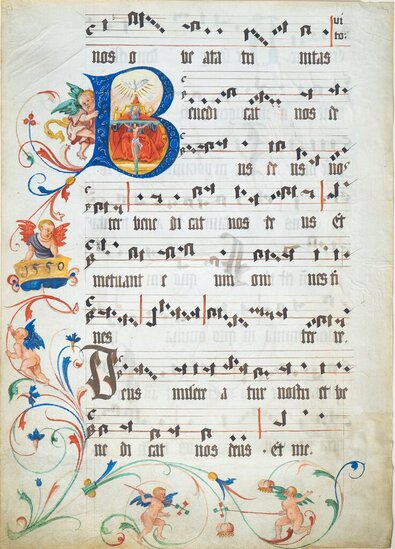 nos o be ata tri nitas
Benedi cat nos de
us de us no
ster bene di cat nos de us Et
1550
metuant e um om nes fi
nes ter re.
Deus misere a tur nostri et be
ne di cat nos deus . Et me.